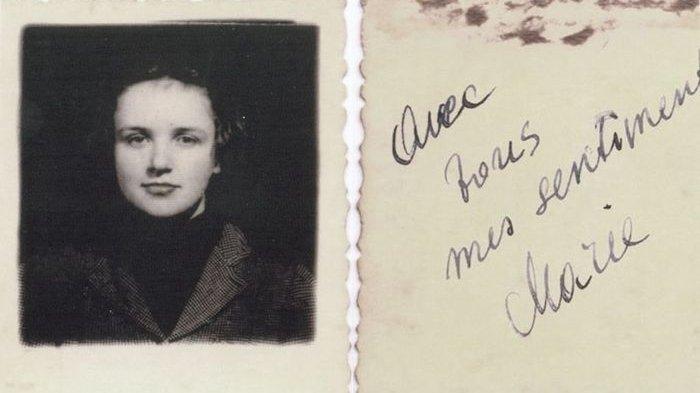 Avec
tous
mes sentiment
Marie